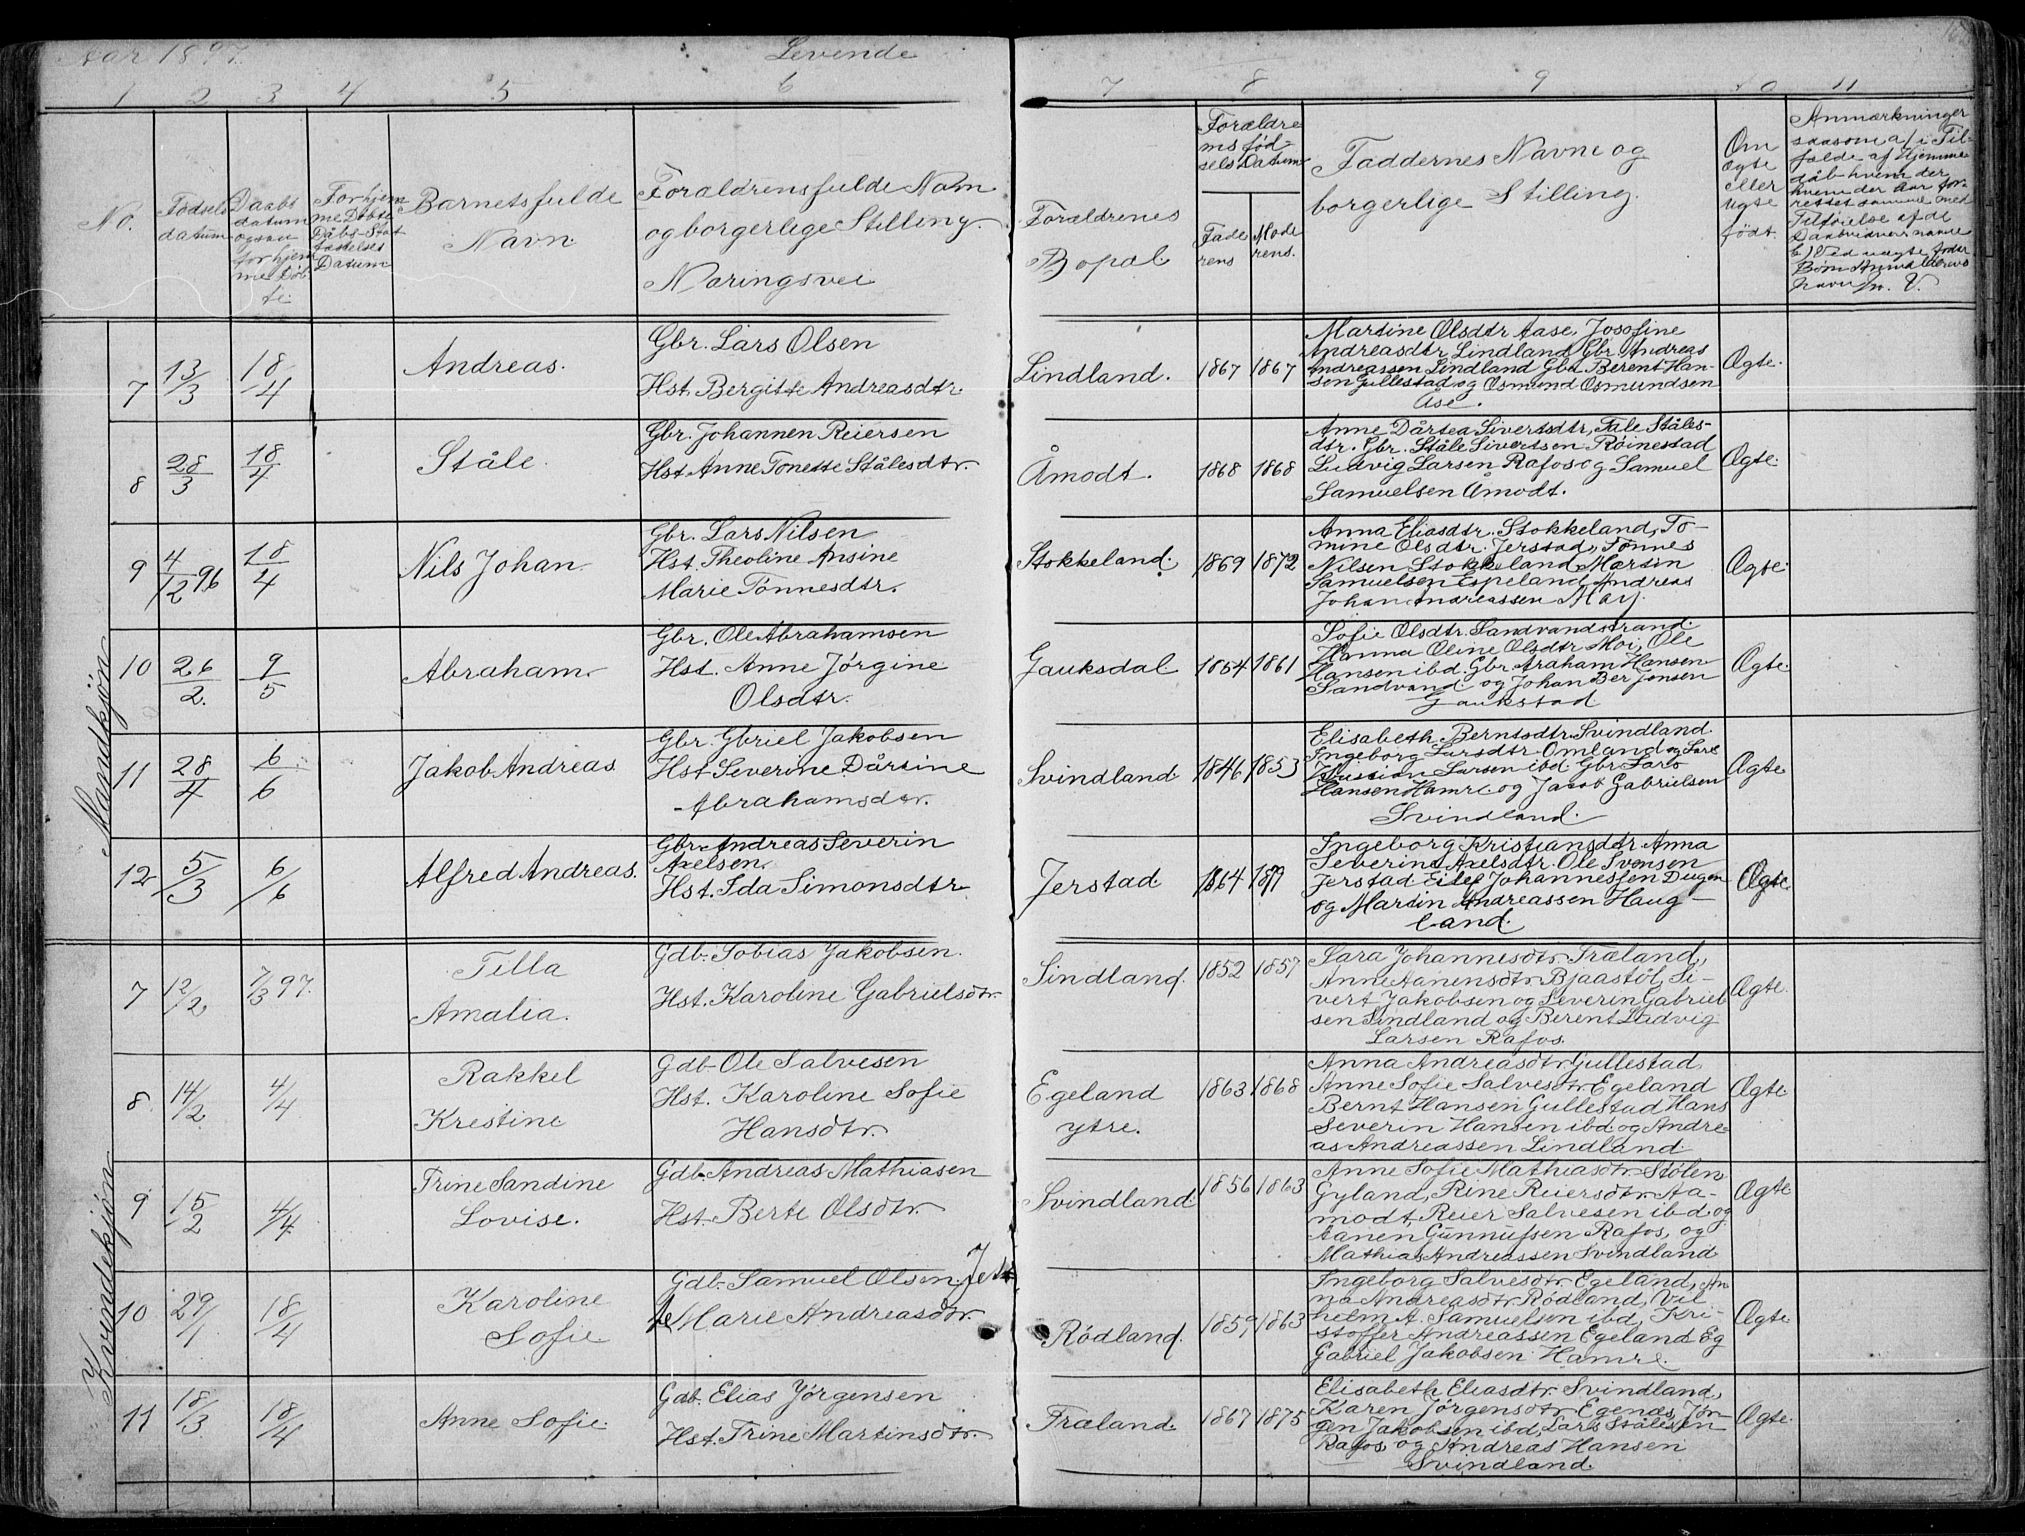 Aar 1897. Levende
1 2 3 4 5 6 7 8 9 10 11
No.
Fødsels
datum
Daabs
datum
ogsaa
for hjem
me Døb
te.
For hjem
me Døbte
Dåbs-Stad
fæstelses
Datum
Barnets fulde
Navn.
Forældrens fulde Navn
og borgerlige Stilling.
Næringsvei
Forældrenes
Bopæl
Forældre
rns fød-
sels Datum
Fade
rens
Mode
rens.
Faddernes Navne og
borgerlige Stilling.
Om
ægte
eller
uægte
født
Anmærkninger
saasom a) i Til-
fælde af Hjemme
dåb hvem der
Mandkjøn
7 13/3 18/4 Andreas.
Gbr. Lars Olsen
Hst. Bergitte Andreasdtr.
Lindland. 1867 1867
Martine Olsdtr Aase, Josofine
Andreasdtr Lindland Gbr. Andreas
Andreassen Lindland Gbr. Berent Han-
sen Gullestad og Osmund Osmundsen
Åse.
Ægte.
8 28/3 18/4 Ståle.
Gbr. Johannen Reiersen
Hst Anne Tonette Stålesdtr.
Åmodt. 1868 1868
Anne Dårtea Sivertsdtr, Tale Ståles-
dtr. Gbr. Ståle Sivertsen Röinestad
Ludvig Larsen Rafos og Samuel
Samuelsen Åmodt.
Ægte.
9 4/12 96 18/4 Nils Johan.
Gbr. Lars Nilsen
Hst. Theoline Ansine
Marie Tönnesdtr.
Stokkeland. 1869 1872
Anna Eliasdtr. Stokkeland, To-
mine Olsdtr. Jerstad, Tønnes
Nilsen Stokkeland Martin
Samuelsen Espeland Andreas
Johan Andreassen Moij.
Ægte
10 26/2. 9/5 Abraham.
Gbr. Ole Abrahamsen
Hst. Anne Jørgine
Olsdtr.
Gauksdal 1854 1861
Sofie Olsdtr. Sandvandstrand.
Hanna Oline Olsdtr Moi, Ole
Hansen ibd Gbr. Araham Hansen
Sandvand og Johan Ber Jensen
Gaukstad
Ægte.
11 28/4 6/6 Jakob Andreas.
Gbr. Gbriel Jakobsen
Hst Severine Dårtine
Abrahamsdtr.
Svindland 1846 1853
Elisabeth Berntsdtr Svindland.
Ingeborg Larsdtr. Omland og Lars
Larsen ibd Gbr Lars
Hansen Hamre og Jacob Gabrielsen
Svindland.
Ægte
12 5/3 6/6 Alfred Andreas.
Gbr. Andreas Severin
Axelsen.
Hst. Ida Simonsdtr
Jerstad 1864
Ingeborg Kristiansdtr Anna
Severine Axelsdtr. Ole Svensen
Jerstad Eilef Johannessen Dugan
og Martin Andreassen Haug-
land.
Ægte
Kvindekjøn
7 12/2 7/3 97. Tella
Amalia.
Gdb. Tobias Jakobsen.
Hst. Karoline Gabrielsdtr.
Sindland. 1852 1857
Sara Johannesdtr Træland,
Anne Aanensdtr Bjaastöl, Si-
vert Jakobsen og Severin Gabriel
sen Sindland og Berent Ludvig
Larsen Rafos.
Ægte.
8. 14/2 4/4 Rakkel
Krestine
Gdb. Ole Salvesen
Hst. Karoline Sofie
Hansdtr.
Egeland
ytre. 1863 1868
Anna Andreasdtr Gullestad.
Anne Sofie Salvesdtr Egeland
Bernt Hansen Gullestad Hans
Severin Hansen ibd og Andre-
as Andreassen Lindland.
Ægte
9 15/2 4/4 Trine Sandine
Lovise.
Gdb. Andreas Mathiasen
Hst. Berte Olsdtr.
Svindland 1856 1863
Anne Sofie Mathiasdtr Stölen
Gyland, Rine Reiersdtr Aa-
modt, Reier Salvesen ibd. og
Aanen Gunnufsen Rafos, og
Mathias Andreassen Svindland
Ægte
10 29/1 18/4 Karoline
Sofie
Gdb. Samuel Olsen.
Marie Andreasdtr.
Rødland. 1859 1863
Ingeborg Salvesdtr. Egeland, An
na Andreasdtr Rødland, Vil
helm A. Samuelsen ibd, Kri-
stoffer Andreassen Egeland Eg
Gabriel Jakobsen Hamre.
Ægte
11 18/3 18/4 Anne Sofie.
Gdb. Elias Jörgensen
Hst. Trine Martinsdtr.
Træland. 1867 1875
Elisabeth Eliasdtr. Svindland,
Karen Jörgensdtr. Egenæs, Jör-
gen Jakobsen ibd, Lars Stålesen
Rafos og Andreas Hansen
Svindland
Ægte.